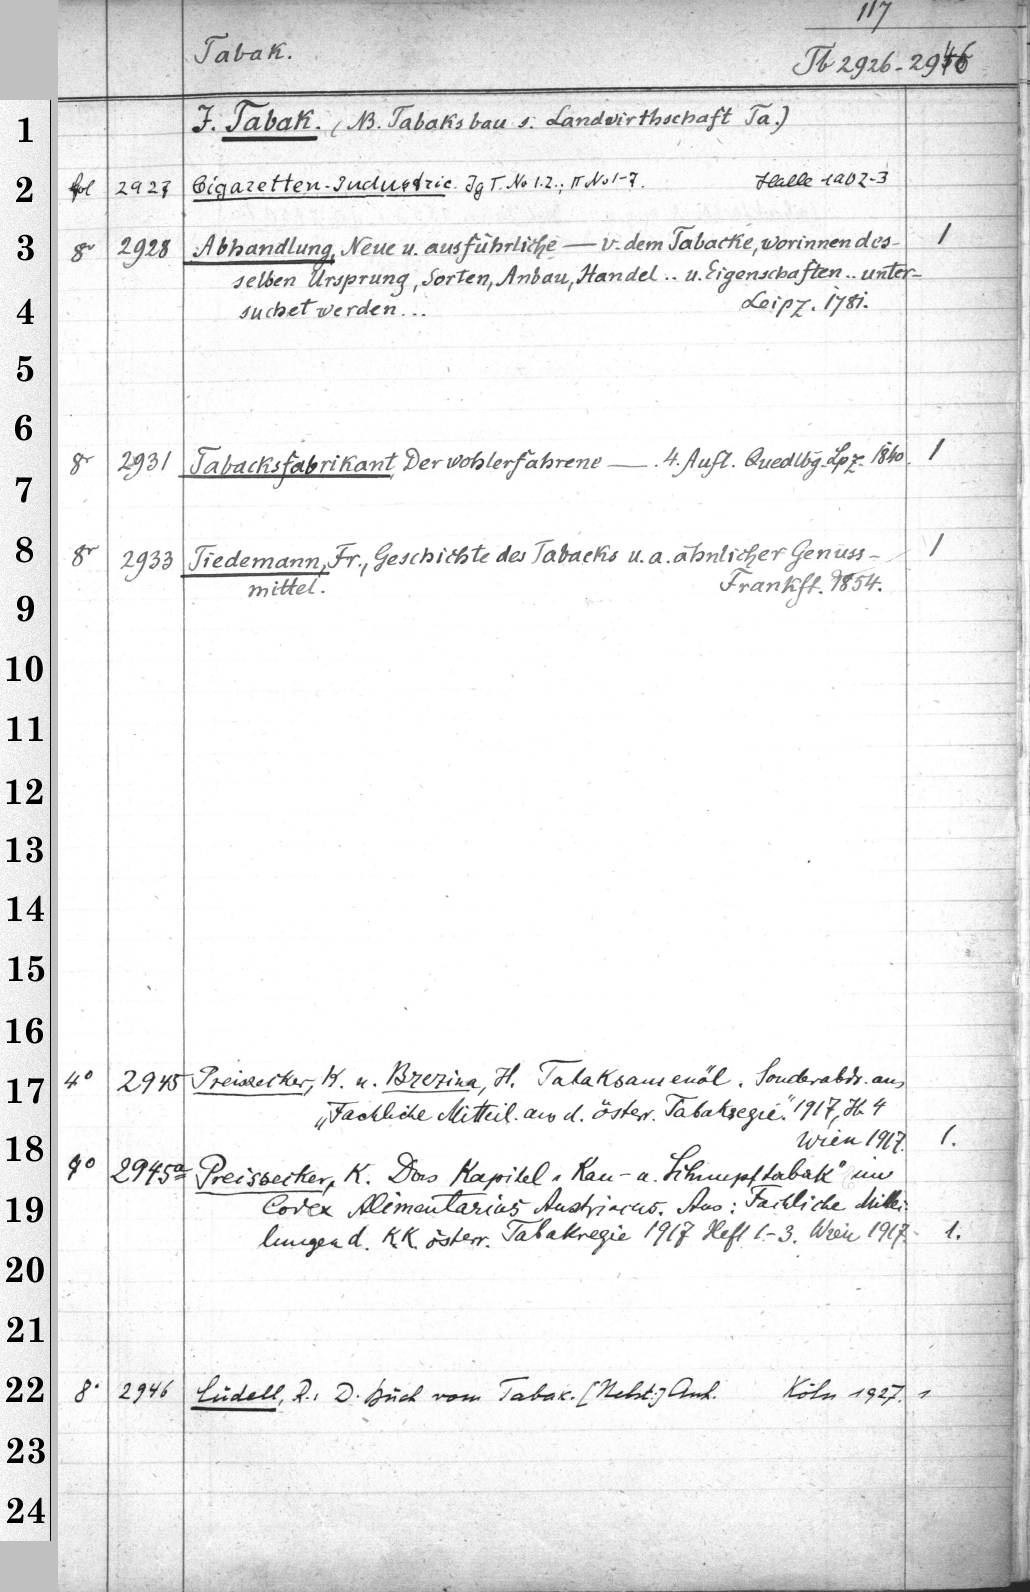 117
Tabak.
Tb 2926-2946
J. Tabak. (NB. Tabaksbau s. Landwirthschaft Ta.)
fol 2927 Cigaretten-Industrie. Jg I. No 1.2.; II No 1-7. Halle 1902-3
8r 2928 Abhandlung, Neue u. ausführliche — v. dem Tabacke, worinnen des- 1
selben Ursprung, Sorten, Anbau, Handel .. u. Eigenschaften .. unter-
suchet werden... Leipz. 1781.
8r 2931 Tabacksfabrikant, Der wohlerfahrene — . 4. Aufl. Quedlbg. Lpz. 1840. 1
8r 2933 Tiedemann, Fr., Geschichte des Tabacks u. a. ähnlicher Genuss- 1
mittel. Frankft. 1854.
4° 2945 Preissecker, K. u. Brezina, H. Tabaksamenöl. Sonderabdr. aus
„Fachliche Mitteil. aus d. österr. Tabakregie." 1917, H. 4
Wien 1917. 1.
4° 2945a Preissecker, K. Das Kapitel „Kau- u. Schnupftabak" im
Codex Alimentarius Austriacus. Aus: Fachliche Mittei-
lungen d. K.K. österr. Tabakregie 1917 Heft 1.-3. Wien 1917. 1.
8° 2946 Cudell, R.: D. Buch vom Tabak. [Nebst:] Anh. Köln 1927. 1
1
2
3
4
5
6
7
8
9
10
11
12
13
14
15
16
17
18
19
20
21
22
23
24